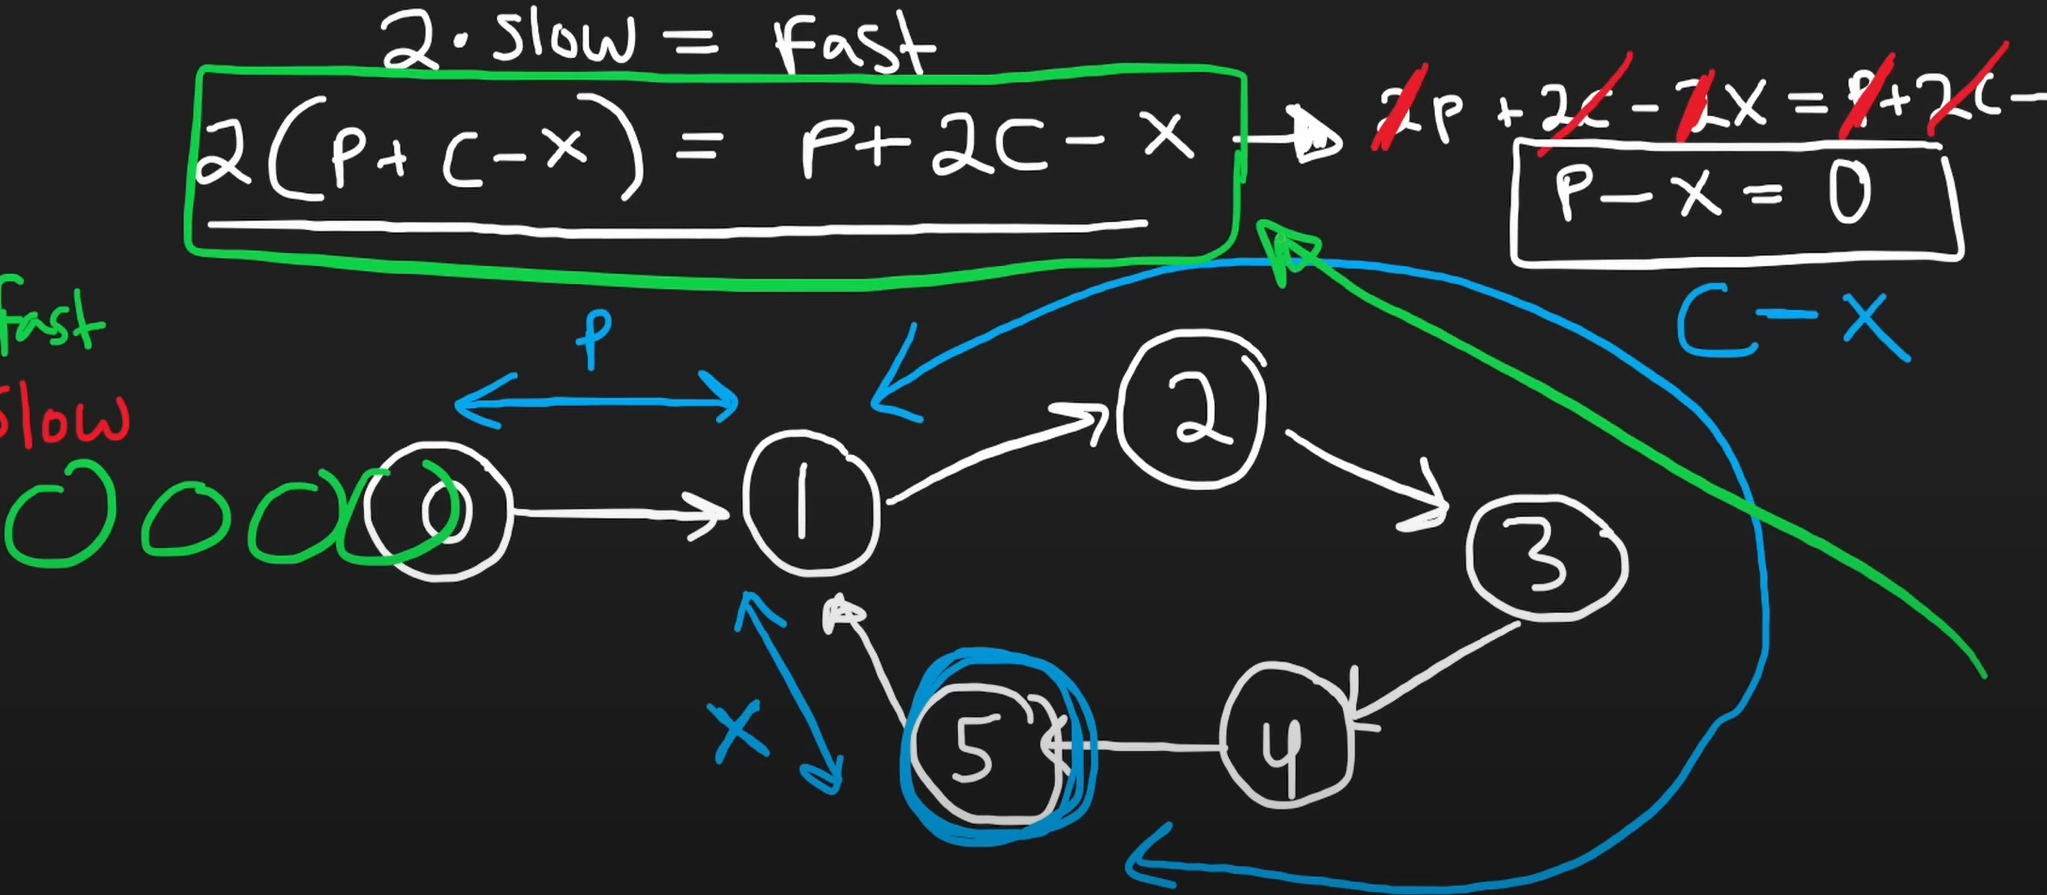 2·slow = Fast
2(P+C-X) = P+2C-X
2P+2C-2X=P+2C-
P-X=0
C-X
Fast
P
slow
0
1
2
3
X
5
4